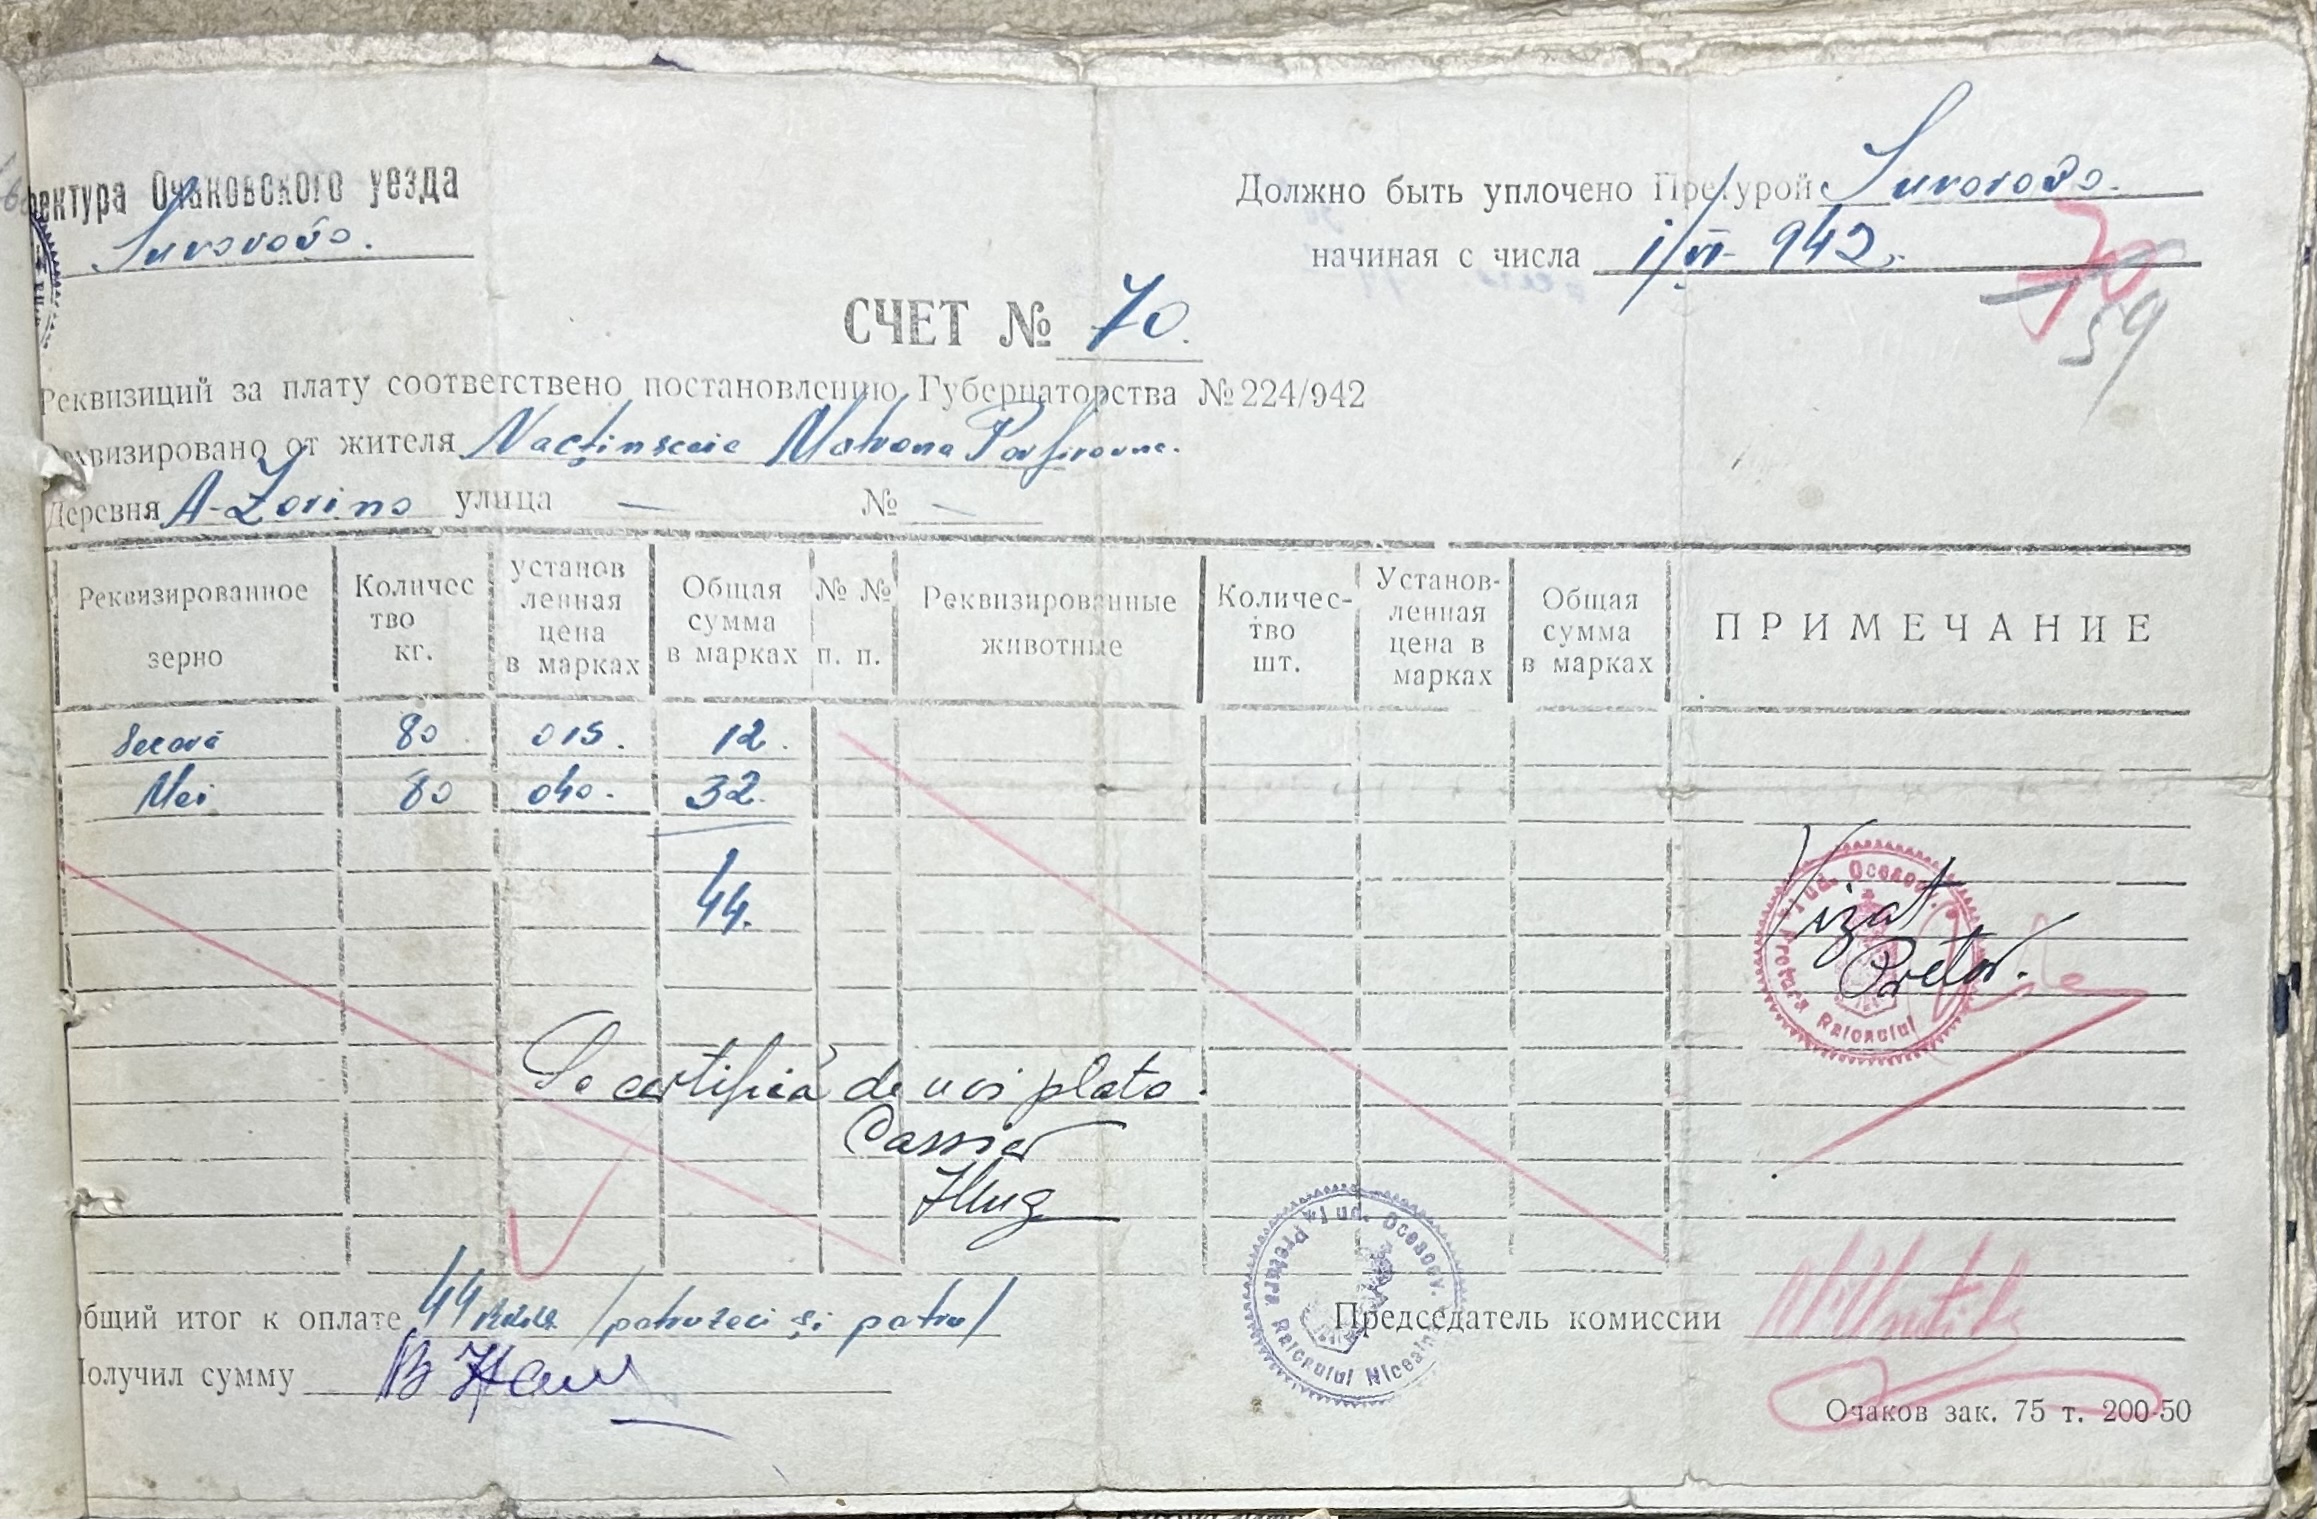 ректура Очаковского уезда
Suvorovo.
Должно быть уплочено Претурой Suvorovo.
начиная с числа 1/VI-942.
70
59
СЧЕТ № 70.
Реквизиций за плату соответствено постановлению Губернаторства № 224/942
Реквизировано от жителя Matrona Porfirovna.
Деревня A-Zorino улица — № —
Реквизированное зерно
Количес тво кг.
установ ленная цена в марках
Общая сумма в марках
№ № п. п.
Реквизированные животные
Количес- тво шт.
Установ- ленная цена в марках
Общая сумма в марках
ПРИМЕЧАНИЕ
Secară 80 015. 12.
Mei 80 040. 32.
44.
Jud. Oceacov
Pretura Raionului
Vizat.
Pretor.
Se certifică de noi plata.
Cassier
Общий итог к оплате 44 /patruzeci și patru/
Jud. Oceacov.
Pretura Raionului
Председатель комиссии
Получил сумму
Очаков зак. 75 т. 200-50